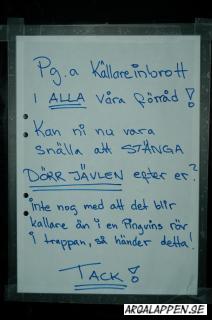 Pg.a Källareinbrott
i ALLA våra förråd!
Kan ni nu vara
snälla att STÄNGA
DÖRR JÄVLEN efter er?
inte nog med att det blir
kallare än i en Pingvins röv
i trappan, så händer detta!
TACK!
ARGALAPPEN.SE